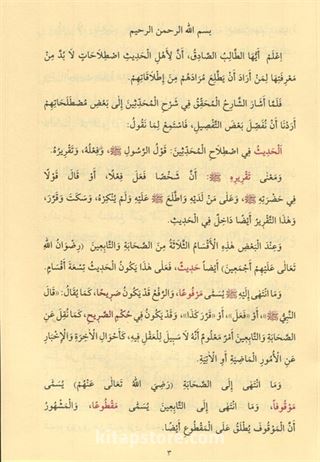 بسم الله الرحمن الرحيم
اِعْلَمْ أَيُّهَا الطَّالِبُ الصَّادِقُ، أَنَّ لِأَهْلِ الْحَدِيثِ اصْطِلَاحَاتٍ لَا بُدَّ مِنْ
مَعْرِفَتِهَا لِمَنْ أَرَادَ أَنْ يَطَّلِعَ مُرَادَهُمْ مِنْ إِطْلَاقَاتِهِمْ.
فَلَمَّا أَشَارَ الشَّارِحُ الْمُحَقِّقُ فِي شَرْحِ الْمُحَدِّثِينَ إِلَى بَعْضِ مُصْطَلَحَاتِهِمْ
أَرَدْنَا أَنْ نُفَصِّلَ بَعْضَ التَّفْصِيلِ، فَاسْتَمِعْ لِمَا نَقُولُ:
اَلْحَدِيثُ فِي اصْطِلَاحِ الْمُحَدِّثِينَ: قَوْلُ الرَّسُولِ ﷺ، وَفِعْلُهُ، وَتَقْرِيرُهُ.
وَمَعْنَى تَقْرِيرِهِ ﷺ: أَنَّ شَخْصًا فَعَلَ فِعْلًا، أَوْ قَالَ قَوْلًا
فِي حَضْرَتِهِ ﷺ، وَعَلَى مَنْ لَدَيْهِ وَاطَّلَعَ ﷺ عَلَيْهِ وَلَمْ يُنْكِرْهُ، وَسَكَتَ وَقَرَّرَ،
وَهٰذَا التَّقْرِيرُ أَيْضًا دَاخِلٌ فِي الْحَدِيثِ.
وَعِنْدَ الْبَعْضِ هٰذِهِ الْأَقْسَامُ الثَّلَاثَةُ مِنَ الصَّحَابَةِ وَالتَّابِعِينَ (رِضْوَانُ اللهِ
تَعَالَى عَلَيْهِمْ أَجْمَعِينَ) أَيْضاً حَدِيثٌ، فَعَلَى هٰذَا يَكُونُ الْحَدِيثُ تِسْعَةَ أَقْسَامٍ.
وَمَا انْتَهَى إِلَيْهِ ﷺ يُسَمَّى مَرْفُوعًا، وَالرَّفْعُ قَدْ يَكُونُ صَرِيحًا، كَمَا يُقَالُ: «قَالَ
النَّبِيُّ ﷺ»، أَوْ «فَعَلَ»، أَوْ «قَرَّرَ كَذَا»، وَقَدْ يَكُونُ فِي حُكْمِ الصَّرِيحِ، كَمَا نُقِلَ عَنِ
الصَّحَابَةِ وَالتَّابِعِينَ أَمْرٌ مَعْلُومٌ أَنَّهُ لَا سَبِيلَ لِلْعَقْلِ فِيهِ، كَأَحْوَالِ الْآخِرَةِ وَالْإِخْبَارِ
عَنِ الْأُمُورِ الْمَاضِيَةِ أَوِ الْآتِيَةِ.
وَمَا انْتَهَى إِلَى الصَّحَابَةِ (رَضِيَ اللهُ تَعَالَى عَنْهُمْ) يُسَمَّى
مَوْقُوفاً، وَمَا انْتَهَى إِلَى التَّابِعِينَ يُسَمَّى مَقْطُوعًا، وَالْمَشْهُورُ
أَنَّ الْمَوْقُوفَ يُطْلَقُ عَلَى الْمَقْطُوعِ أَيْضًا.
kitapstore.com
٣